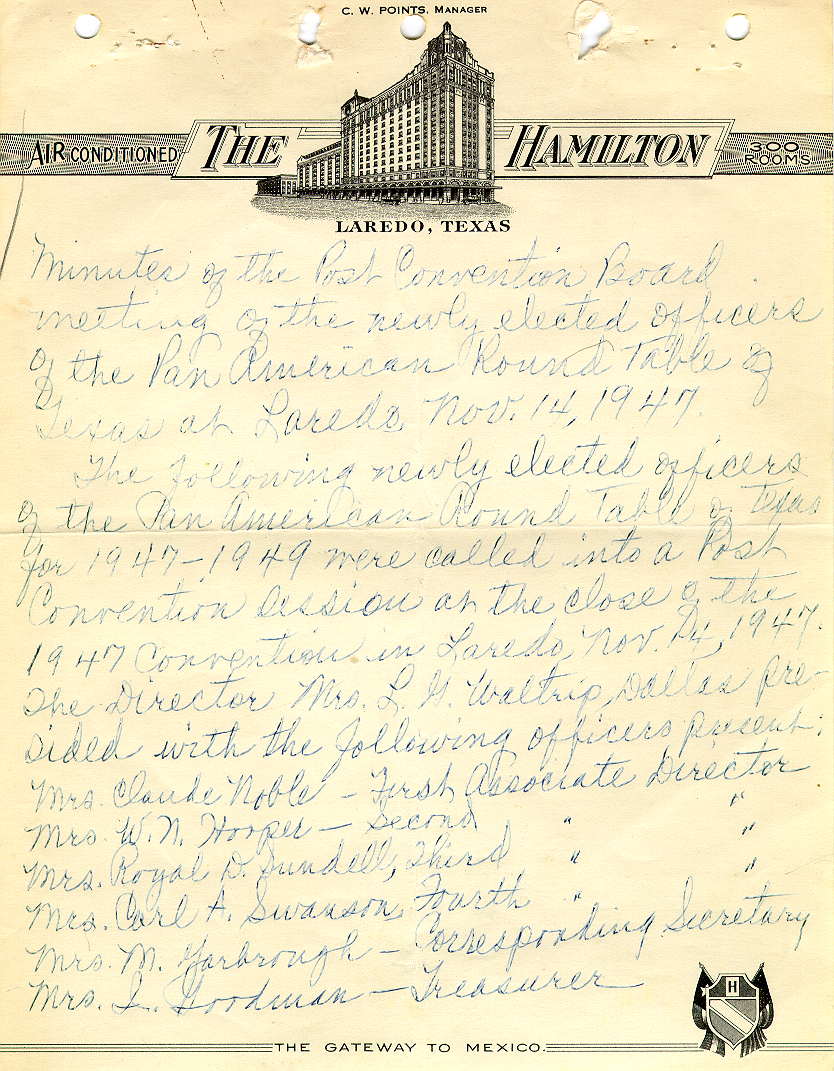 C. W. POINTS, MANAGER
AIR CONDITIONED THE HAMILTON 300 ROOMS
LAREDO, TEXAS
Minutes of the Post Convention Board
meeting of the newly elected officers
of the Pan American Round Table of
Texas at Laredo, Nov. 14, 1947.
The following newly elected officers
of the Pan American Round Table of Texas
for 1947-1949 were called into a Post
Convention session at the close of the
1947 Convention in Laredo, Nov. 14, 1947.
The Director Mrs. L. G. Waltrip, Dallas pre-
sided with the following officers present:
Mrs. Claude Noble - First Associate Director
Mrs. W. N. Hooper - Second " "
Mrs. Royal D. Sundell, Third " "
Mrs. Carl A. Swanson, Fourth " "
Mrs. M. Yarbrough - Corresponding Secretary
Mrs. L. Goodman - Treasurer
H
THE GATEWAY TO MEXICO.